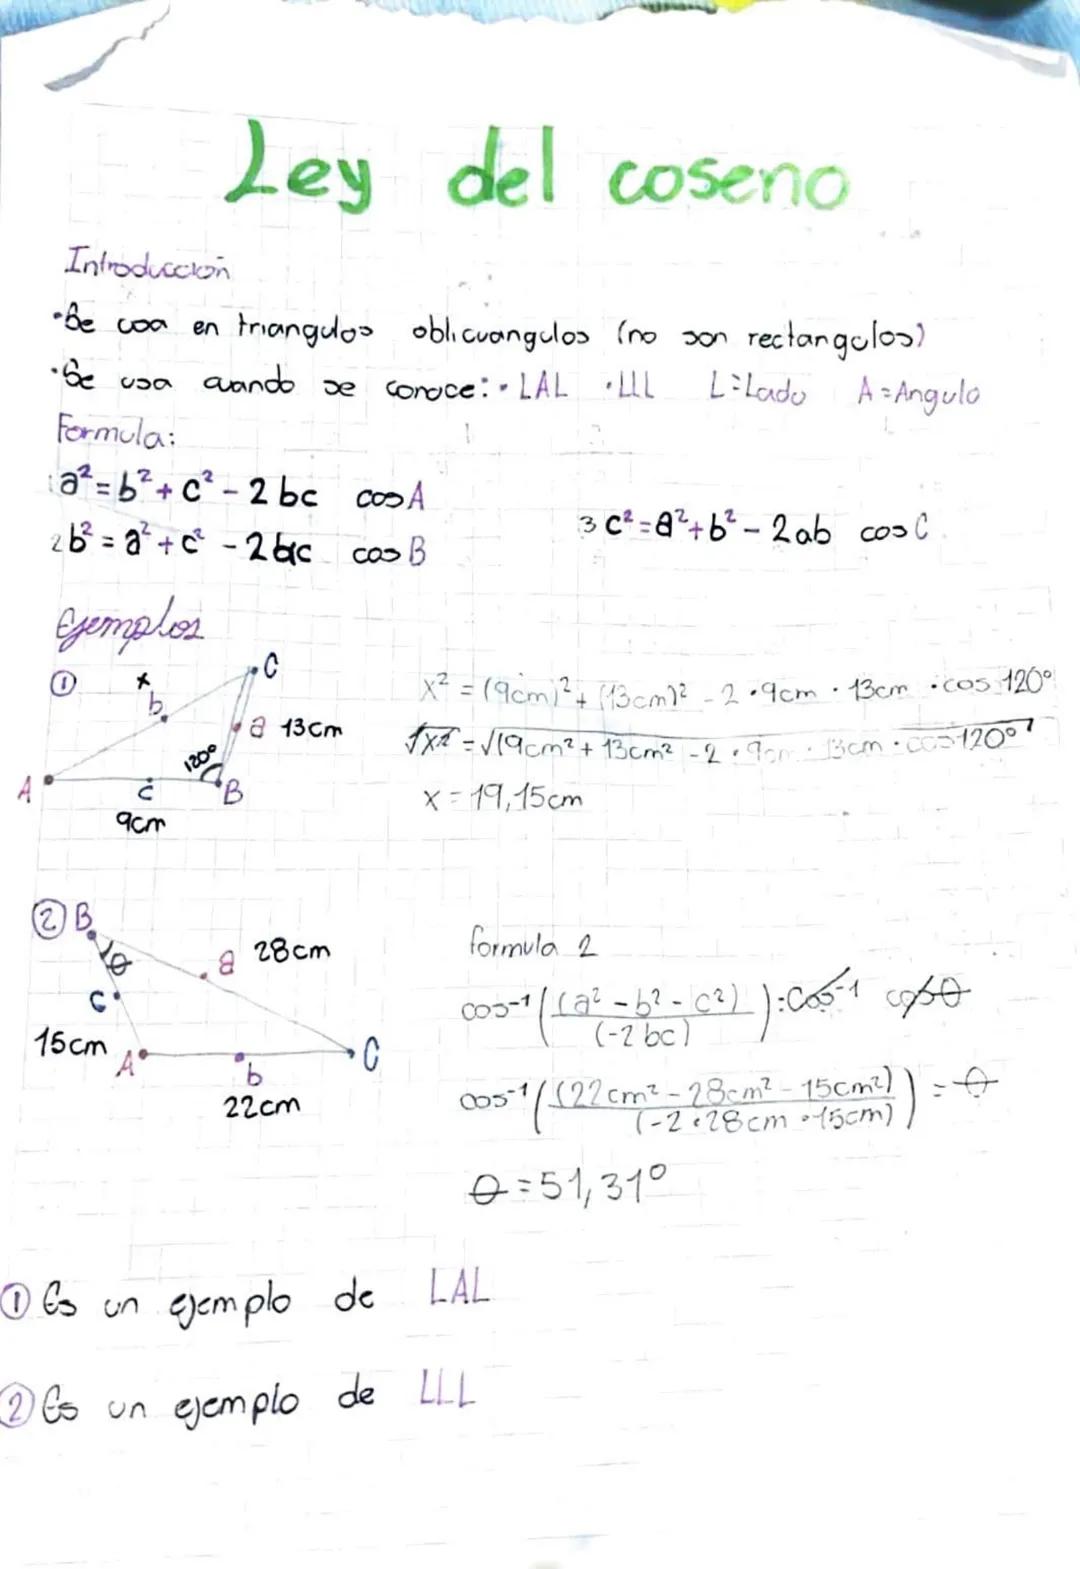 Ley del coseno
Introduccion
•Se usa en triangulos oblicuangulos (no son rectangulos)
•Se usa cuando se conoce: • LAL • LLL L=Lado A=Angulo
Formula:
1 a² = b² + c² - 2bc cos A
2 b² = a² + c² - 2ac cos B
3 c² = a² + b² - 2ab cos C
Ejemplos
① x C
b
a 13cm
120°
A c B
9cm
x² = (9cm)² + (13cm)² - 2 • 9cm • 13cm • cos 120°
√x² = √(9cm² + 13cm² - 2 • 9cm • 13cm • cos 120°
x = 19,15cm
② B
θ
a 28cm
c
15cm A C
b
22cm
formula 2
cos-1 ( (a² - b² - c²) / (-2bc) ) = cos-1 cos θ
cos-1 ( (22cm² - 28cm² - 15cm²) / (-2 • 28cm • 15cm) ) = θ
θ = 51,31°
① Es un ejemplo de LAL
② Es un ejemplo de LLL